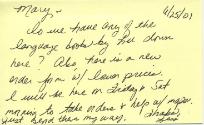 Mary, 6/25/01
Do we have any of the
language books by her down
here? Also, here is a new
order form w/ lower price.
I will be here on Friday & Sat
morning to take orders & help w/ mags.
just send them my way. Thanks,